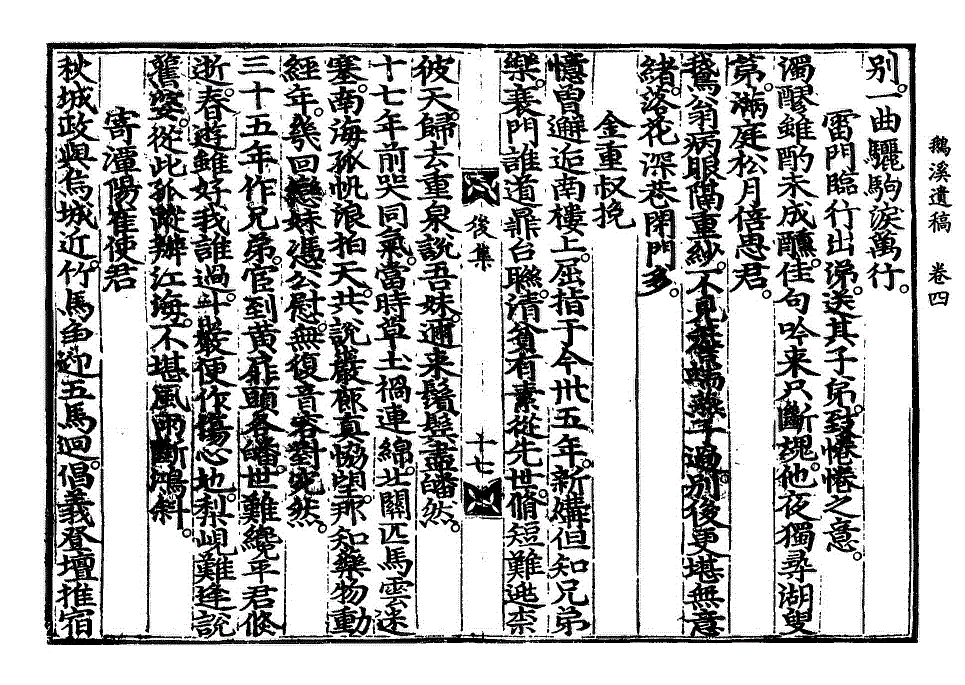 鵝溪遺稿　卷四
別一曲驪駒淚萬行
雷門臨行出涕送其子弟致惓惓之意
濁醪雖酌未成醺佳句吟来只斷魂他夜獨尋湖叟
第滿庭松月倍思君
鵝翁病眼隔重紗不見 燕子過別後更堪無意
緒落花深巷閉門多
金重叔挽
憶曾邂逅南樓上屈指于今卅五年新媾但知兄弟
樂衰門誰道鼎台聯清貧有素從先世脩短難逃柰
後集　十七
彼天歸去重泉說吾妹邇来鬢髮盡皤然
十七年前哭同氣當時草土禍連綿北關匹馬雲迷
塞南海孤帆浪拍天共說巖廊真恊望那知藥物動
經年幾回戀妹憑公慰無復音容對宛然
三十五年作兄弟官到黃扉頭各皤世難纔平君倏
逝春遊雖好我誰過斗 便作傷心地梨峴難逢說
舊 從此孤蹤辦江海不堪風雨斷鴻斜
寄潭陽崔使君
秋城政與烏城近竹馬爭迎五馬迴倡義登壇推宿